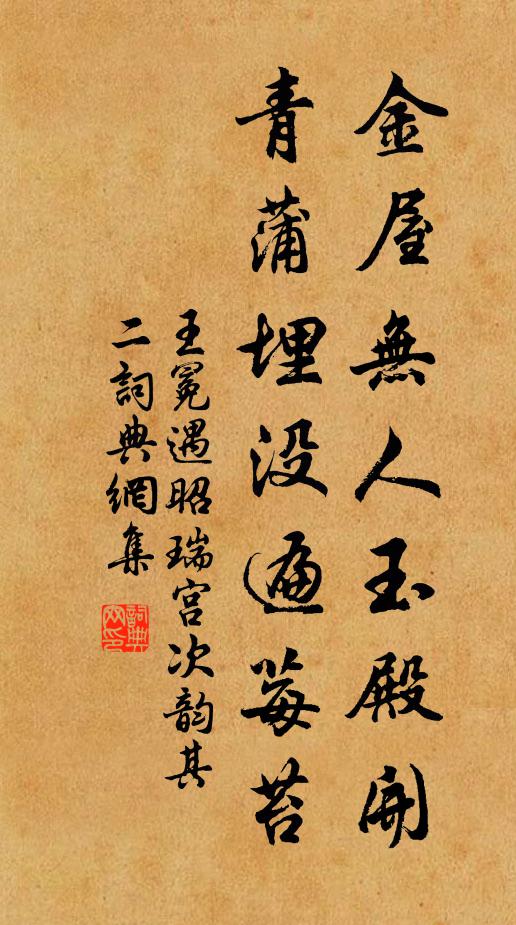 金屋無人玉殿開
青蒲埋没遍莓苔
王冕遇昭瑞宫次韵其
二詞典網集
詞典网印